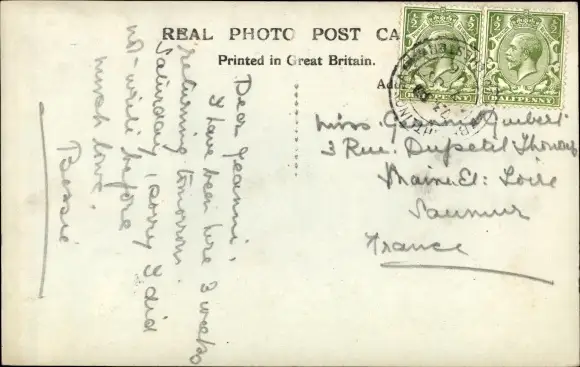 REAL PHOTO POST CA
Printed in Great Britain.
Dear Jeanni,
I have been here 3 weeks
returning tomorrow
Saturday, sorry I did
not write before
much love.
Bessie
Miss
3 Rue: Dupetit Thouars
Maine Et: Loire
Saumur
France
½ ½
HALFPENNY